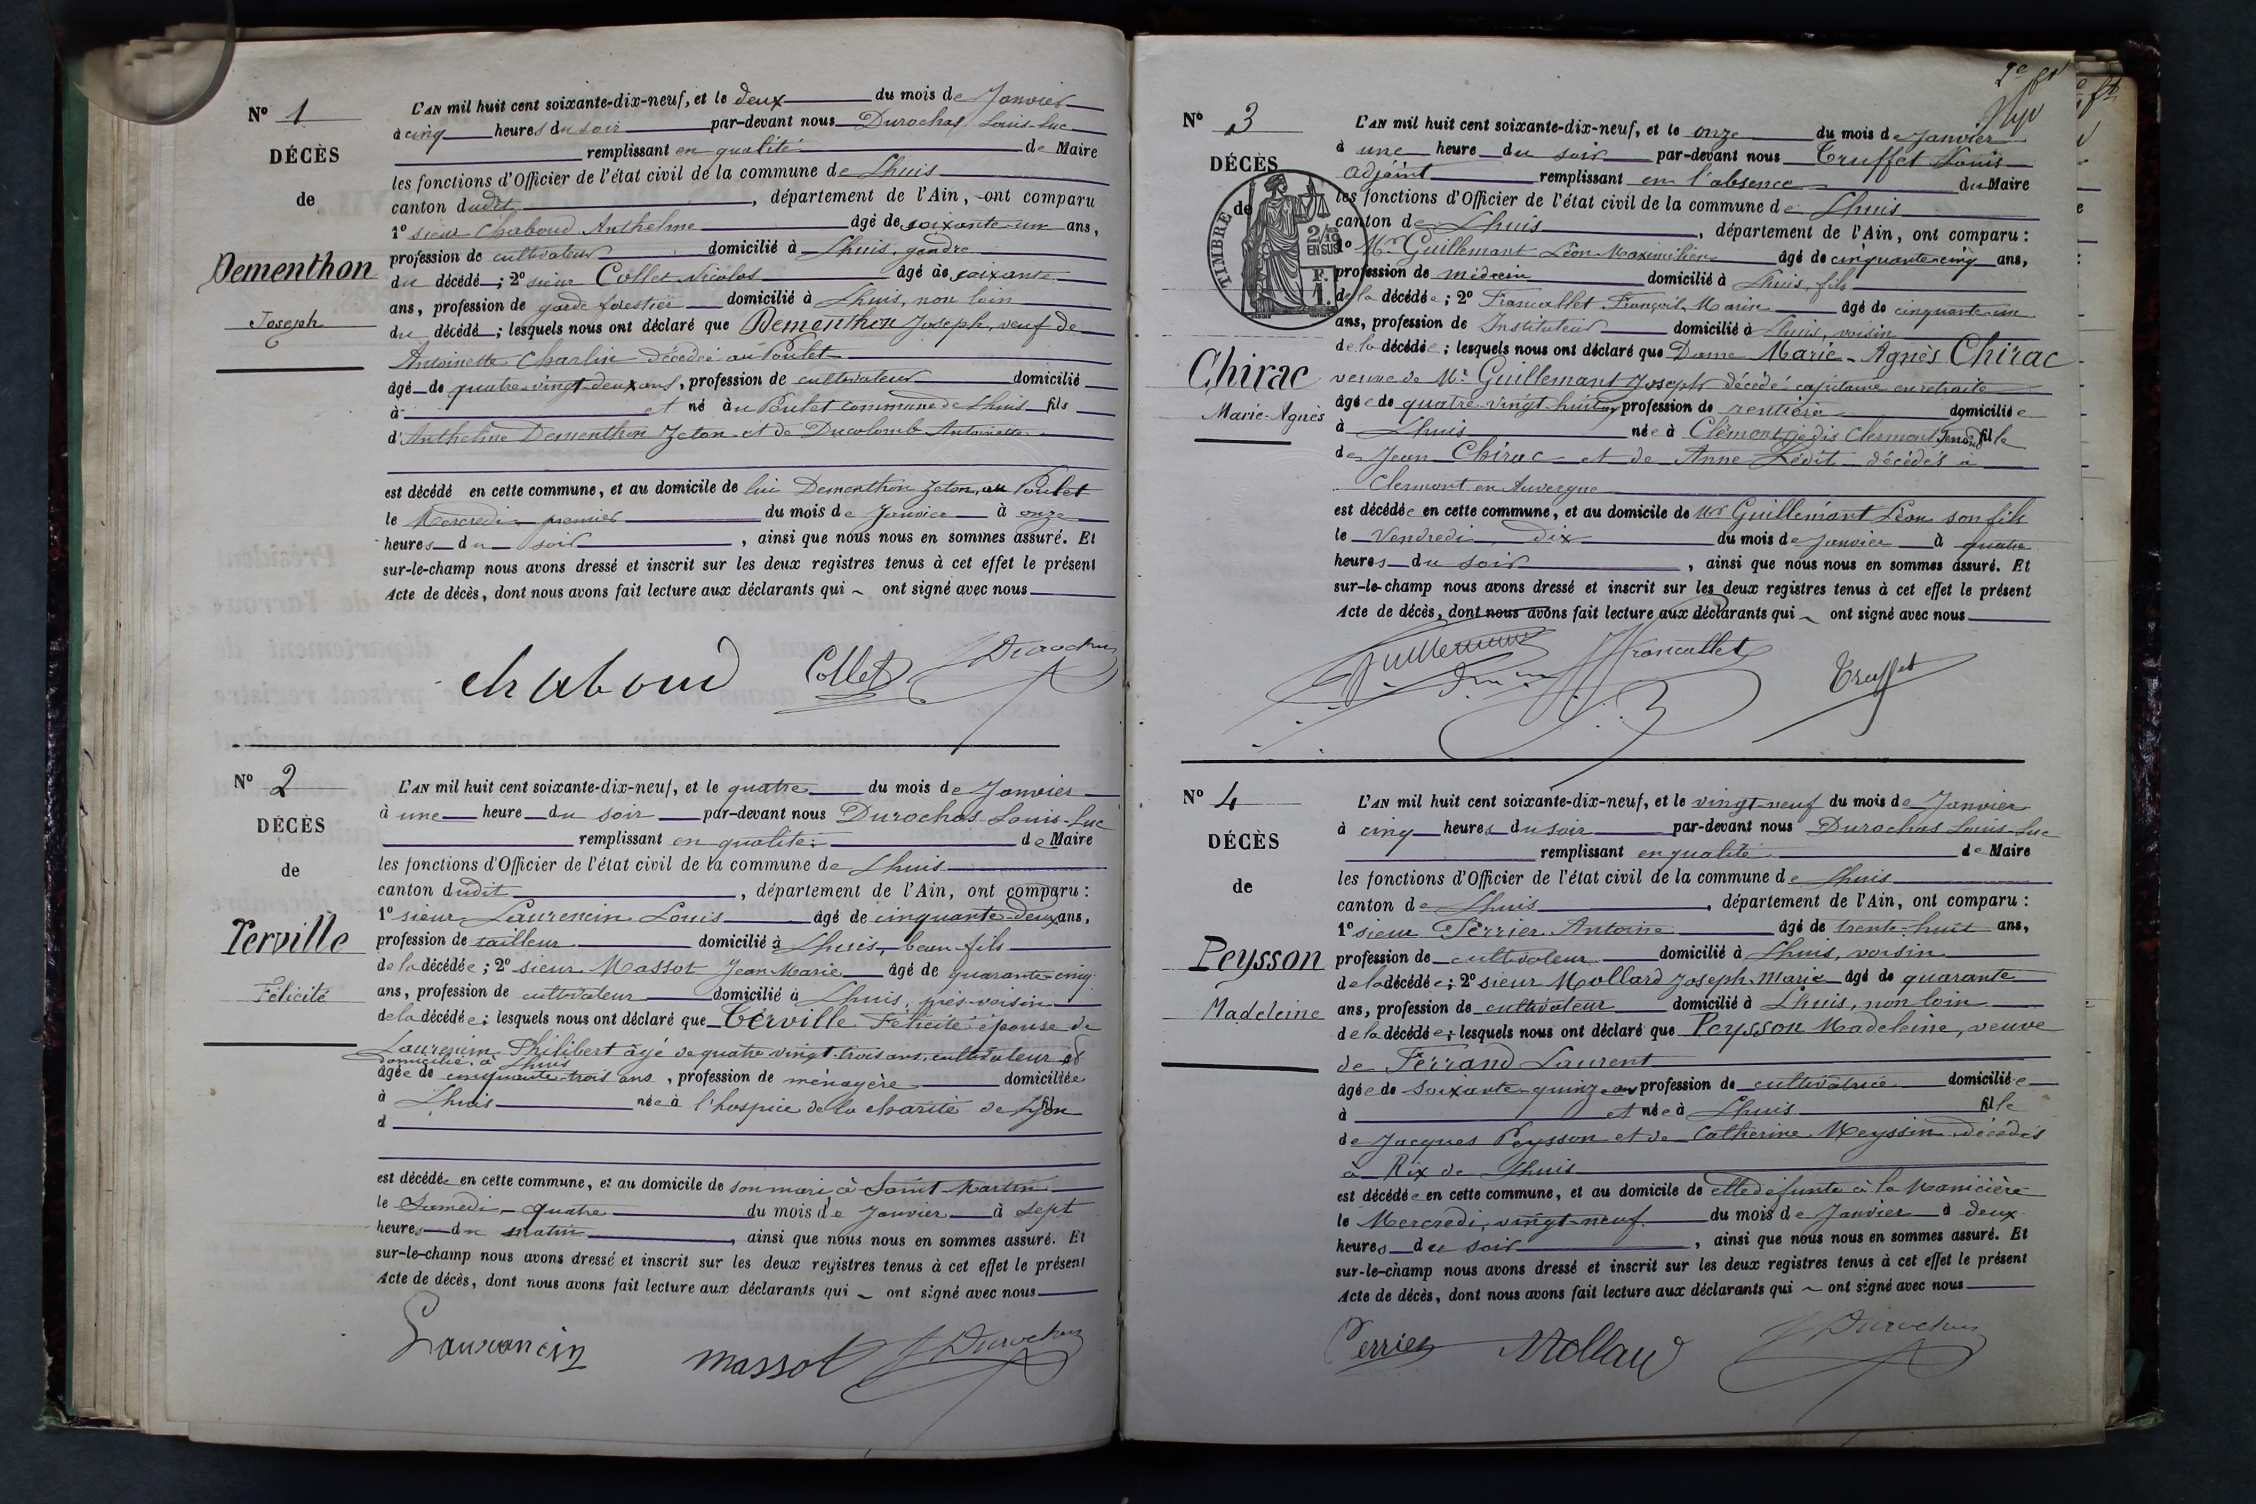 N° 1
DÉCÈS
de
Dementhon
Joseph
L'AN mil huit cent soixante-dix-neuf, et le deux du mois de Janvier
à cinq heures du soir par-devant nous Durochas Louis-Luc
remplissant en qualité de Maire
les fonctions d'Officier de l'état civil de la commune de Lhuis
canton dudit, département de l'Ain, ont comparu
1° sieur Chaboud Anthelme âgé de soixante-un ans,
profession de cultivateur domicilié à Lhuis, gendre
du décédé; 2° sieur Collet Nicolas âgé de soixante
ans, profession de garde forestier domicilié à Lhuis, non loin
du décédé; lesquels nous ont déclaré que Dementhon Joseph, veuf de
Antoinette Charlin décédée au Poulet
âgé de quatre-vingt-deux ans, profession de cultivateur domicilié
à et né au Poulet commune de Lhuis fils
d'Anthelme Dementhon Zeton et de Ducolomb Antoinette
est décédé en cette commune, et au domicile de lui Dementhon Zeton, au Poulet
le Mercredi premier du mois de Janvier à onze
heures du soir, ainsi que nous nous en sommes assuré. Et
sur-le-champ nous avons dressé et inscrit sur les deux registres tenus à cet effet le présent
Acte de décès, dont nous avons fait lecture aux déclarants qui ~ ont signé avec nous
chaboud Collet Durochas
N° 2
DÉCÈS
de
Terville
Félicité
L'AN mil huit cent soixante-dix-neuf, et le quatre du mois de Janvier
à une heure du soir par-devant nous Durochas Louis-Luc
remplissant en qualité de Maire
les fonctions d'Officier de l'état civil de la commune de Lhuis
canton dudit, département de l'Ain, ont comparu:
1° sieur Laurencin Louis âgé de cinquante-deux ans,
profession de tailleur domicilié à Lhuis, beau-fils
de la décédée; 2° sieur Massot Jean-Marie âgé de quarante-cinq
ans, profession de cultivateur domicilié à Lhuis, près-voisin
de la décédée; lesquels nous ont déclaré que Terville Félicité épouse de
Laurencin Philibert âgé de quatre-vingt-trois ans, cultivateur et
domicilié à Lhuis
âgée de cinquante-trois ans, profession de ménagère domiciliée
à Lhuis née à l'hospice de la charité de Lyon fil
d
est décédée en cette commune, et au domicile de son mari à Saint-Martin
le Samedi quatre du mois de Janvier à sept
heures du matin, ainsi que nous nous en sommes assuré. Et
sur-le-champ nous avons dressé et inscrit sur les deux registres tenus à cet effet le présent
Acte de décès, dont nous avons fait lecture aux déclarants qui ~ ont signé avec nous
Laurencin massot Durochas
N° 3
DÉCÈS
de
TIMBRE
2/10 EN SUS
F. 1.
Chirac
Marie-Agnès
L'AN mil huit cent soixante-dix-neuf, et le onze du mois de Janvier
à une heure du soir par-devant nous Truffet Louis
adjoint remplissant en l'absence du Maire
les fonctions d'Officier de l'état civil de la commune de Lhuis
canton de Lhuis, département de l'Ain, ont comparu:
1° Mr Guillemant Léon-Maximilien âgé de cinquante-cinq ans,
profession de médecin domicilié à Lhuis, fils
de la décédée; 2° Francallet François-Marie âgé de cinquante-un
ans, profession de Instituteur domicilié à Lhuis, voisin
de la décédée; lesquels nous ont déclaré que Dame Marie-Agnès Chirac
veuve de Mr Guillemant Joseph décédé capitaine en retraite
âgée de quatre-vingt-huit ans profession de rentière domiciliée
à Lhuis née à Clermont jadis Clermont-Ferrand fille
de Jean Chirac et de Anne Lédit décédés à
Clermont en Auvergne
est décédée en cette commune, et au domicile de Mr Guillemant Léon son fils
le Vendredi, dix du mois de Janvier à quatre
heures du soir, ainsi que nous nous en sommes assuré. Et
sur-le-champ nous avons dressé et inscrit sur les deux registres tenus à cet effet le présent
Acte de décès, dont nous avons fait lecture aux déclarants qui ~ ont signé avec nous
Guillemant Francallet Truffet
N° 4
DÉCÈS
de
Peysson
Madeleine
L'AN mil huit cent soixante-dix-neuf, et le vingt-neuf du mois de Janvier
à cinq heures du soir par-devant nous Durochas Louis-Luc
remplissant en qualité de Maire
les fonctions d'Officier de l'état civil de la commune de Lhuis
canton de Lhuis, département de l'Ain, ont comparu:
1° sieur Perrier Antoine âgé de trente-huit ans,
profession de cultivateur domicilié à Lhuis, voisin
de la décédée; 2° sieur Mollard Joseph-Marie âgé de quarante
ans, profession de cultivateur domicilié à Lhuis, non loin
de la décédée; lesquels nous ont déclaré que Peysson Madeleine, veuve
de Ferrand Laurent
âgée de soixante-quinze ans profession de cultivatrice domiciliée
à et née à Lhuis fille
de Jacques Peysson et de Catherine Meyssin décédés
à Rix de Lhuis
est décédée en cette commune, et au domicile de elle défunte à la Manicière
le Mercredi, vingt-neuf du mois de Janvier à deux
heures du soir, ainsi que nous nous en sommes assuré. Et
sur-le-champ nous avons dressé et inscrit sur les deux registres tenus à cet effet le présent
Acte de décès, dont nous avons fait lecture aux déclarants qui ~ ont signé avec nous
Perrier Mollard Durochas